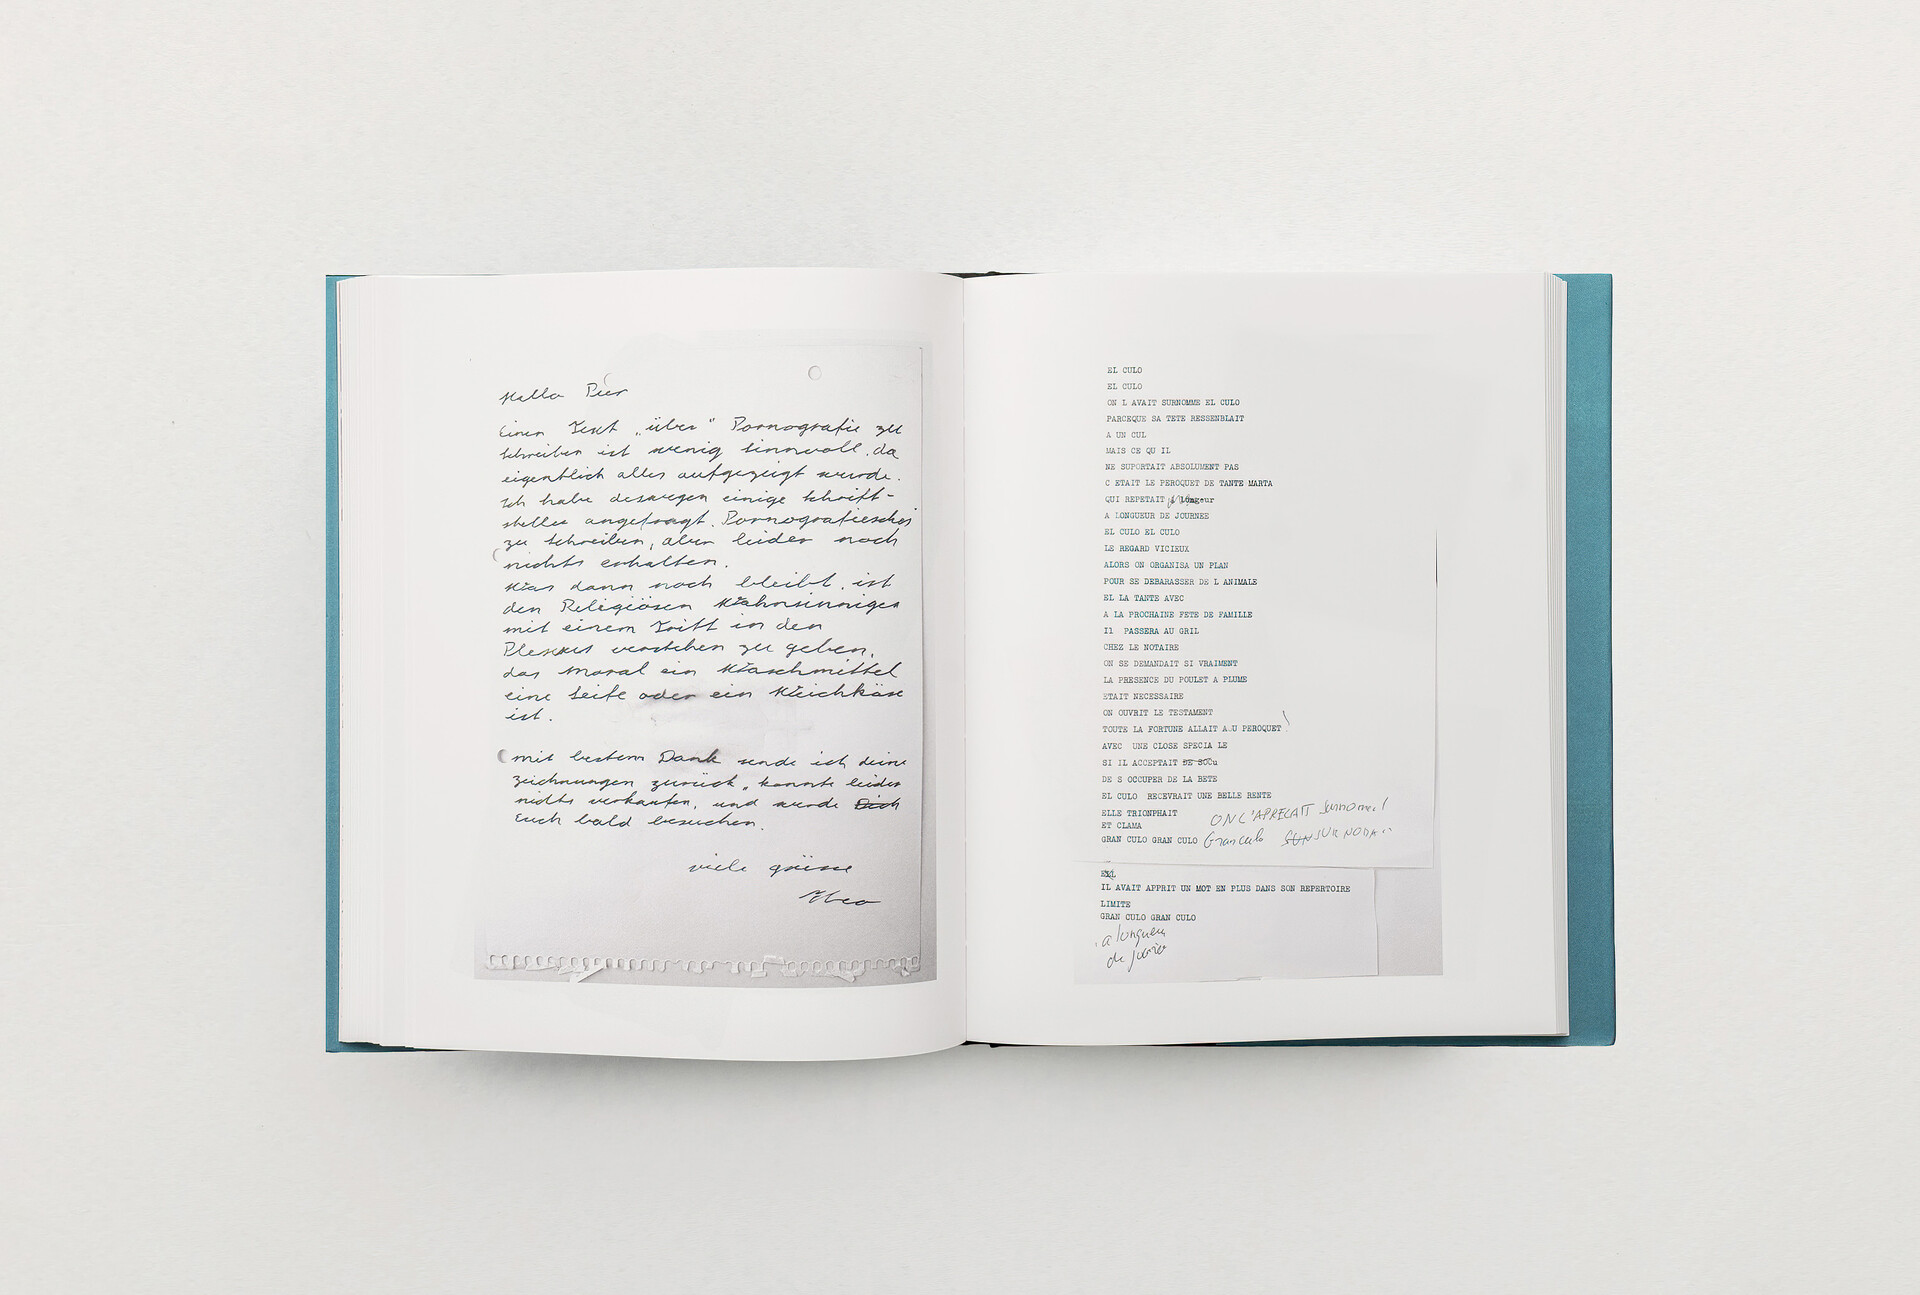 Hallo Pier
Einen Text „über" Pornografie zu
schreiben ist wenig sinnvoll, da
eigentlich alles aufgezeigt wurde.
Ich habe deswegen einige Schrift-
steller angefragt. Pornografisches
zu schreiben, aber leider noch
nichts erhalten.
Was dann noch bleibt, ist
den Religiösen Wahnsinnigen
mit einem Tritt in den
Plexus verstehen zu geben,
das Moral ein Waschmittel
eine Seife oder ein Weichkäse
ist.
mit bestem Dank sende ich deine
Zeichnungen zurück, konnte leider
nichts verkaufen, und werde Dich
Euch bald besuchen.
viele grüsse
EL CULO
EL CULO
ON L AVAIT SURNOMME EL CULO
PARCEQUE SA TETE RESSENBLAIT
A UN CUL
MAIS CE QU IL
NE SUPORTAIT ABSOLUMENT PAS
C ETAIT LE PEROQUET DE TANTE MARTA
QUI REPETAIT Longeur
A LONGUEUR DE JOURNEE
EL CULO EL CULO
LE REGARD VICIEUX
ALORS ON ORGANISA UN PLAN
POUR SE DEBARASSER DE L ANIMALE
EL LA TANTE AVEC
A LA PROCHAINE FETE DE FAMILLE
Il PASSERA AU GRIL
CHEZ LE NOTAIRE
ON SE DEMANDAIT SI VRAIMENT
LA PRESENCE DU POULET A PLUME
ETAIT NECESSAIRE
ON OUVRIT LE TESTAMENT
TOUTE LA FORTUNE ALLAIT AU PEROQUET
AVEC UNE CLOSE SPECIA LE
SI IL ACCEPTAIT DE SOCu
DE S OCCUPER DE LA BETE
EL CULO RECEVRAIT UNE BELLE RENTE
ELLE TRIONPHAIT
ET CLAMA
GRAN CULO GRAN CULO Gran culo
IL AVAIT APPRIT UN MOT EN PLUS DANS SON REPERTOIRE
LIMITE
GRAN CULO GRAN CULO
a longueur
de